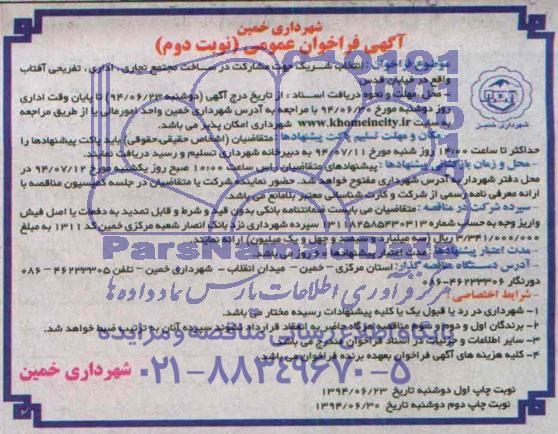 شهرداری خمین
آگهی فراخوان عمومی (نوبت دوم)
موضوع فراخوان: انتخاب شریک جهت مشارکت در ساخت مجتمع تجاری، اداری، تفریحی آفتاب
واقع در خیابان قدس
- محل، مهلت و نحوه دریافت اسناد: از تاریخ درج آگهی (دوشنبه ۹۴/۰۶/۲۳) تا پایان وقت اداری
روز دوشنبه مورخ ۹۴/۰۶/۳۰ با مراجعه به آدرس شهرداری خمین واحد امورمالی یا از طریق مراجعه
به سایت www.khomeincity.ir شهرداری امکان پذیر می باشد.
شهرداری خمین
- مکان و مهلت تسلیم پاکت پیشنهادها: متقاضیان (اشخاص حقیقی-حقوقی) باید پاکت پیشنهادها را
حداکثر تا ساعت ۱۴:۰۰ روز شنبه مورخ ۹۴/۰۷/۱۱ به دبیرخانه شهرداری تسلیم و رسید دریافت نمایند.
- محل و زمان بازگشایی پیشنهادها: پیشنهادهای متقاضیان راس ساعت ۱۰:۰۰ صبح روز یکشنبه مورخ ۹۴/۰۷/۱۲ در
محل دفتر شهرداری به آدرس شهرداری مفتوح خواهد شد. حضور نماینده شرکت یا متقاضیان در جلسه کمیسیون مناقصه با
ارائه معرفی نامه رسمی از شرکت و کارت شناسائی معتبر بلامانع می باشد.
- سپرده شرکت در مناقصه: متقاضیان می بایست ضمانتنامه بانکی بدون قید و شرط و قابل تمدید به دفعات یا اصل فیش
واریز وجه به حساب شماره ۳۱۱۸۲۵۸۵۴۳۰۳۱۳ سپرده شهرداری نزد بانک انصار شعبه مرکزی خمین کد ۱۳۱۱ به مبلغ
۳/۳۴۱/۰۰۰/۰۰۰ ریال (سه میلیارد و سیصد و چهل و یک میلیون) ارائه نمایند.
مدت اعتبار پیشنهادها: مدت اعتبار پیشنهادها ۶۰ روز می باشد.
آدرس دستگاه مناقصه گذار: استان مرکزی - خمین - میدان انقلاب - شهرداری خمین - تلفن ۴۶۲۳۳۰۵-۰۸۶
دورنگار ۴۶۲۳۳۳۰۶-۰۸۶
- شرایط اختصاصی:
۱- شهرداری در رد یا قبول یک یا کلیه پیشنهادات رسیده مختار می باشد.
۲- برندگان اول و دوم و سوم مناقصه هرگاه حاضر به انعقاد قرارداد نشوند سپرده آنان به ترتیب ضبط خواهد شد.
۳- سایر اطلاعات و جزئیات در اسناد فراخوان مندرج می باشد.
۴- کلیه هزینه های آگهی فراخوان بعهده برنده فراخوان می باشد.
شهرداری خمین
نوبت چاپ اول دوشنبه تاریخ ۱۳۹۴/۰۶/۲۳
نوبت چاپ دوم دوشنبه تاریخ ۱۳۹۴/۰۶/۳۰
ParsNamadData
مرکز فرآوری اطلاعات پارس نماد داده ها
پایگاه اطلاع رسانی مناقصه و مزایده
۰۲۱-۸۸۳۴۹۶۷۰-۵